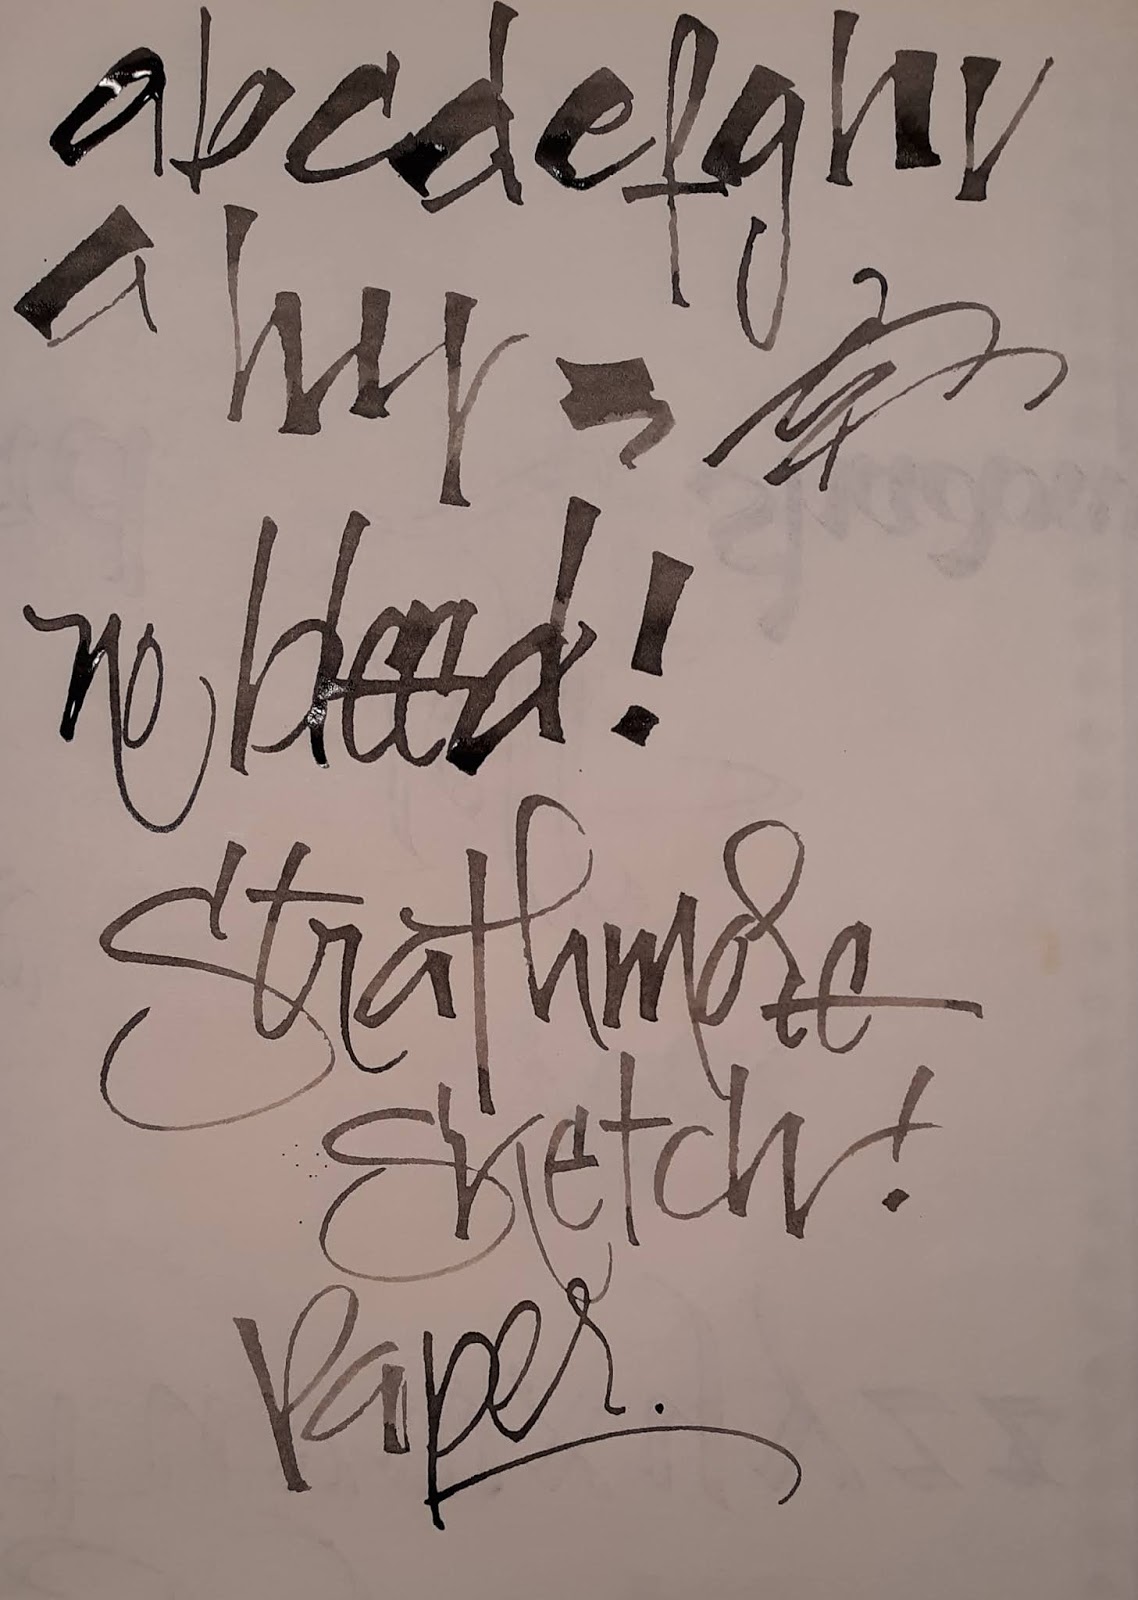 abcdefghi
a
no bleed!
Strathmore
Sketch!
Paper.